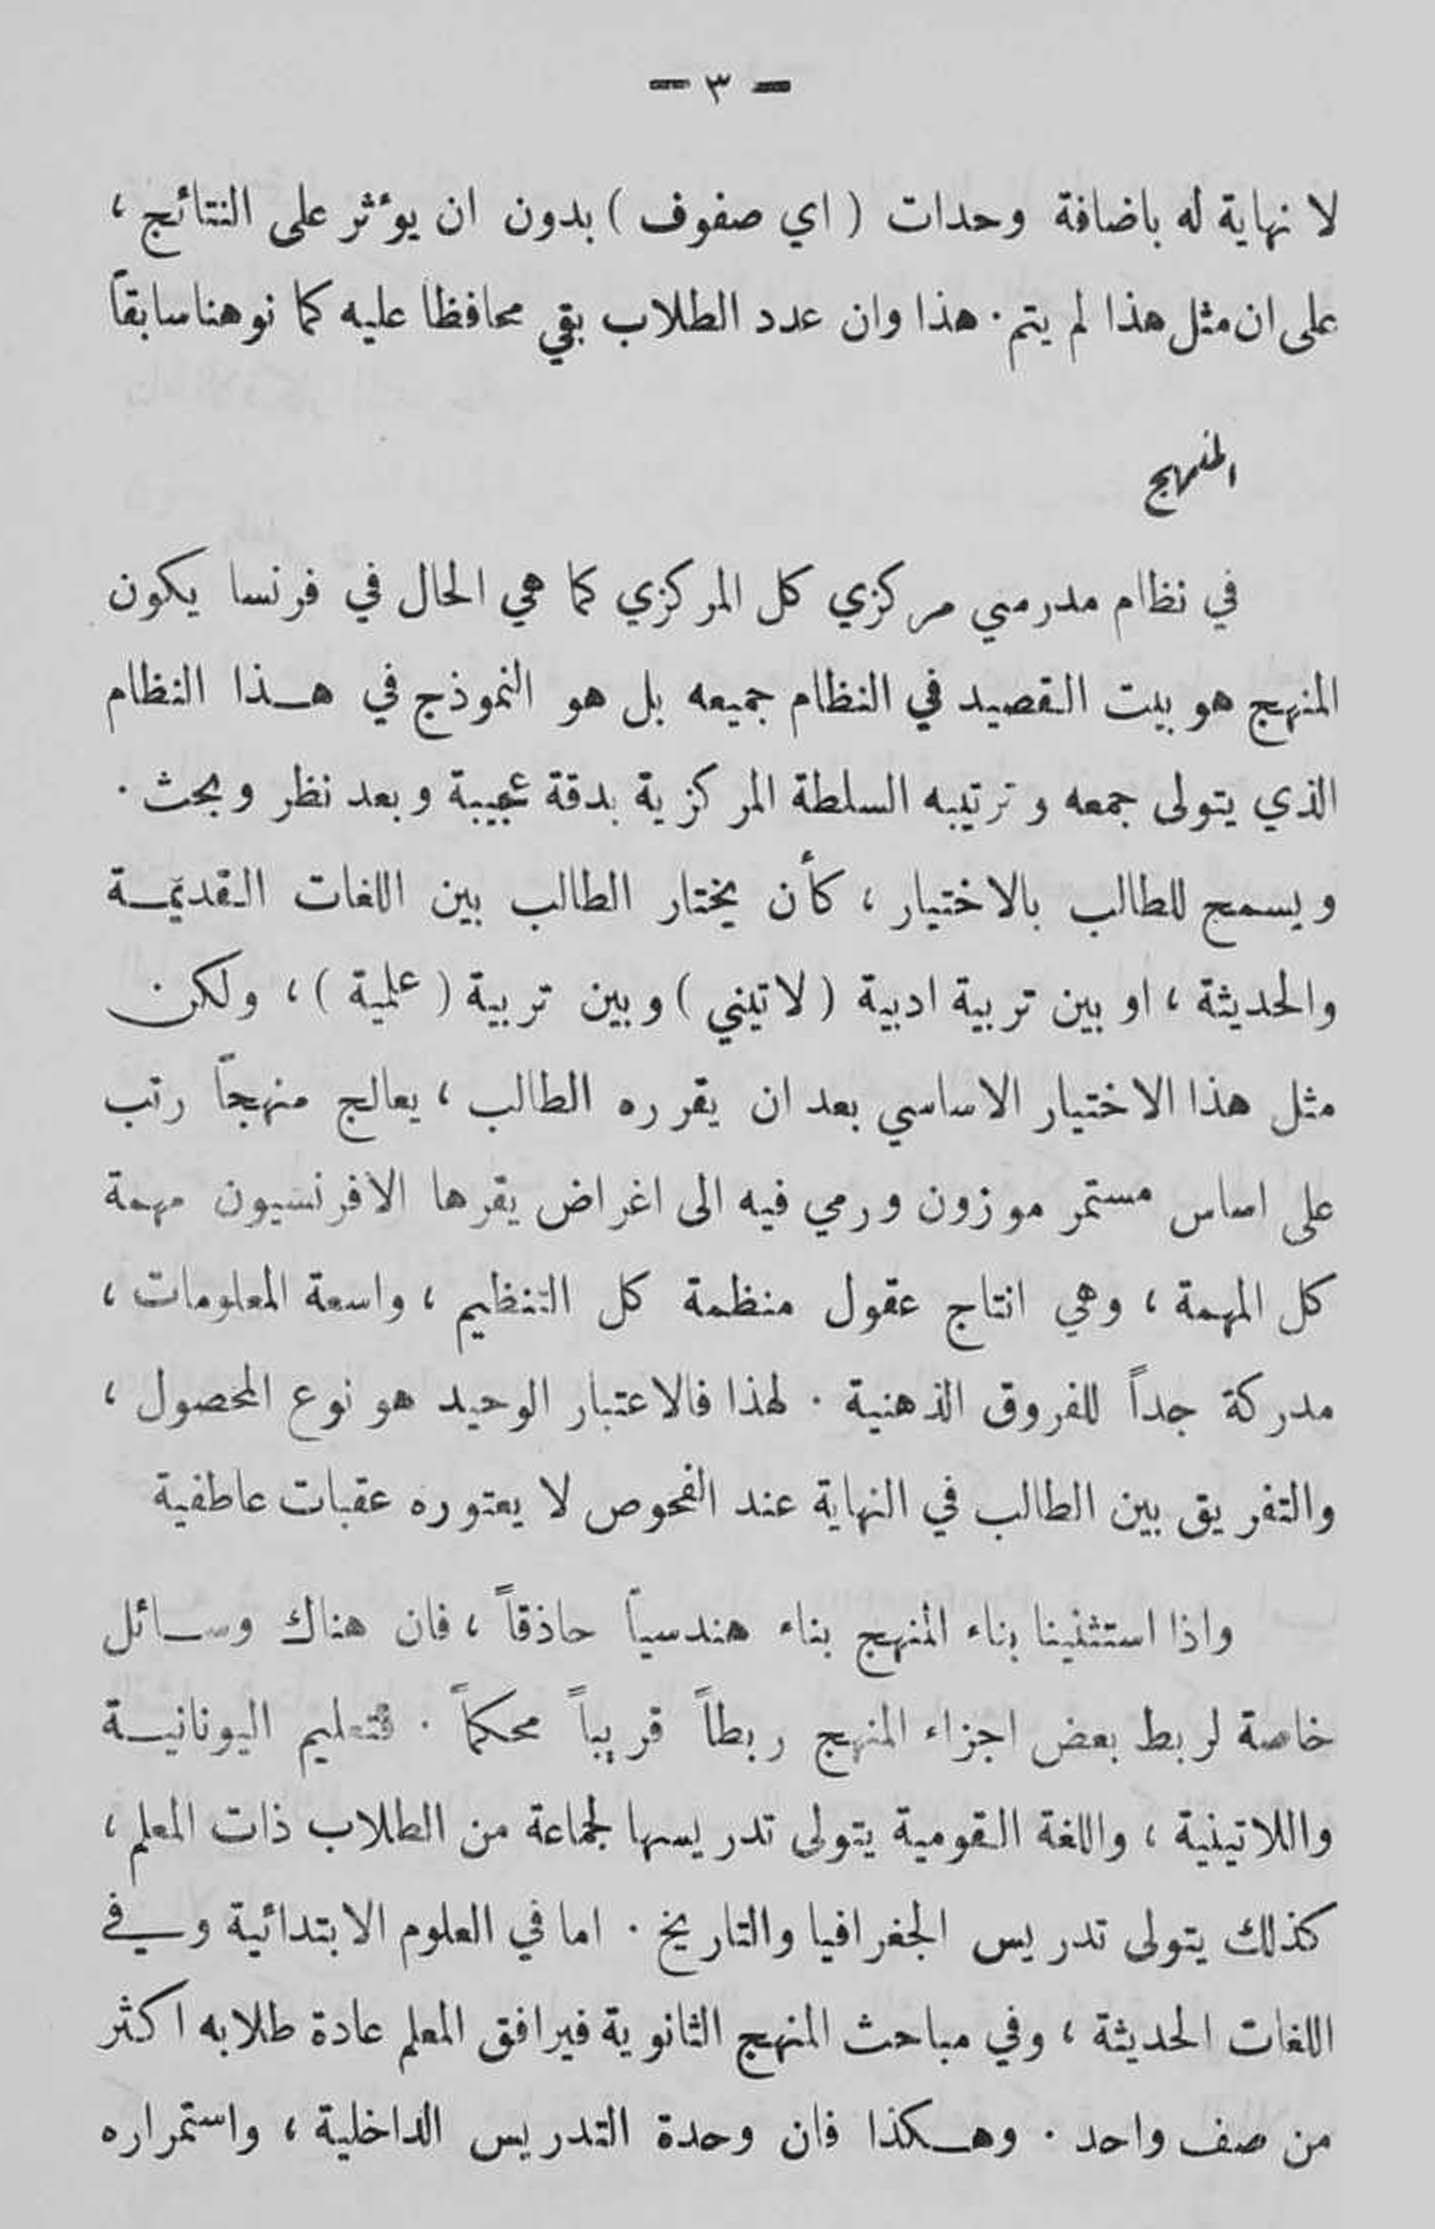 — ٣ —
لا نهاية له باضافة وحدات ( اي صفوف ) بدون ان يؤثر على النتائج ،
على ان مثل هذا لم يتم . هذا وان عدد الطلاب بقي محافظا عليه كما نوهنا سابقاً
المنهج
في نظام مدرسي مركزي كل المركزي كما هي الحال في فرنسا يكون
المنهج هو بيت القصيد في النظام جميعه بل هو النموذج في هـذا النظام
الذي يتولى جمعه وترتيبه السلطة المركزية بدقة عجيبة وبعد نظر وبحث .
ويسمح للطالب بالاختيار ، كأن يختار الطالب بين اللغات القديمـة
والحديثة ، او بين تربية ادبية ( لاتيني ) وبين تربية ( علمية ) ، ولكن
مثل هذا الاختيار الاساسي بعد ان يقرره الطالب ، يعالج منهجاً رتب
على اساس مستمر موزون ورمي فيه الى اغراض يقرها الافرنسيون مهمة
كل المهمة ، وهي انتاج عقول منظمة كل التنظيم ، واسعة المعلومات ،
مدركة جداً للفروق الذهنية . لهذا فالاعتبار الوحيد هو نوع المحصول ،
والتفريق بين الطالب في النهاية عند الفحوص لا يعتوره عقبات عاطفية
واذا استثنينا بناء المنهج بناء هندسياً حاذقاً ، فان هناك وسـائل
خاصة لربط بعض اجزاء المنهج ربطاً قريباً محكماً . فتعليم اليونانيـة
واللاتينية ، واللغة القومية يتولى تدريسها لجماعة من الطلاب ذات المعلم ،
كذلك يتولى تدريس الجغرافيا والتاريخ . اما في العلوم الابتدائية وفي
اللغات الحديثة ، وفي مباحث المنهج الثانوية فيرافق المعلم عادة طلابه اكثر
من صف واحد . وهـكذا فان وحدة التدريس الداخلية ، واستمراره